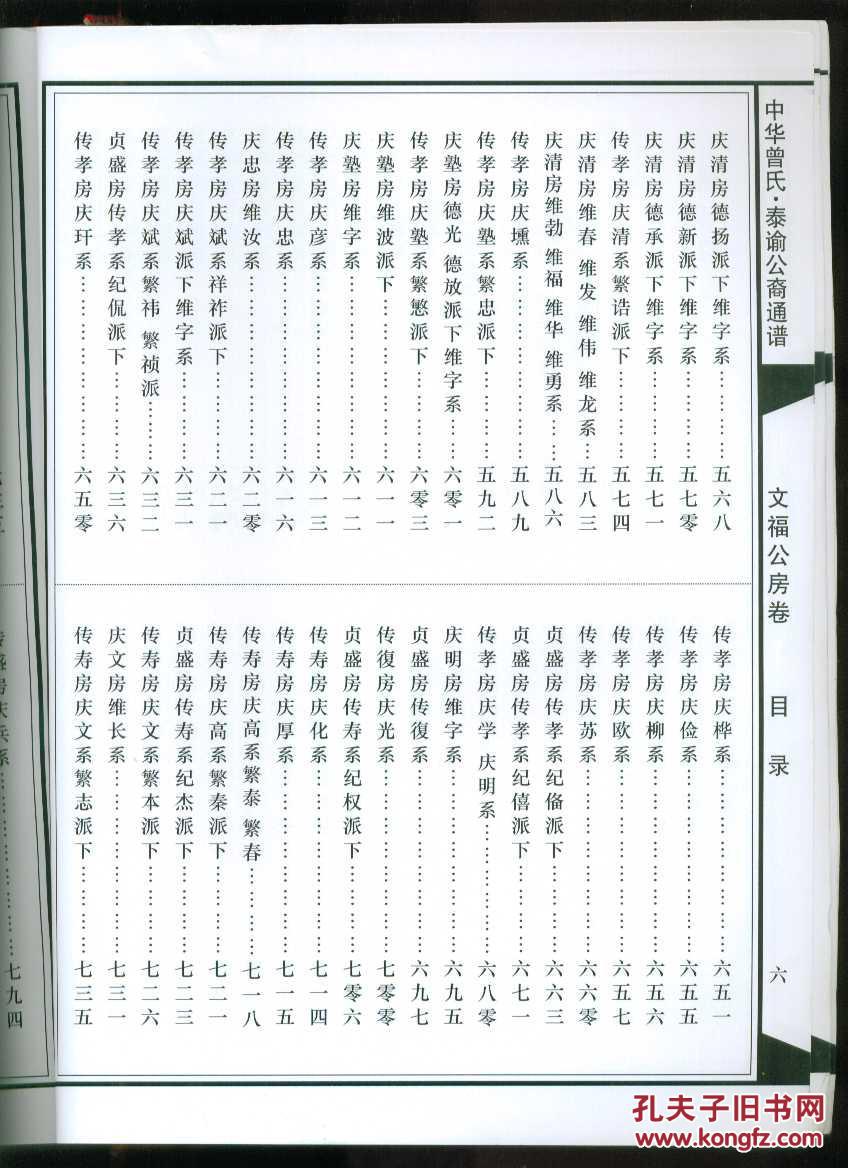 中华曾氏·泰谕公裔通谱
文福公房卷
目录
六
庆清房德扬派下维字系…………五六八
庆清房德新派下维字系…………五七零
庆清房德承派下维字系…………五七一
传孝房庆清系繁诰派下…………五七四
庆清房维春 维发 维伟 维龙系……五八三
庆清房维勃 维福 维华 维勇系……五八六
传孝房庆壎系…………五八九
传孝房庆塾系繁忠派下…………五九二
庆塾房德光 德放派下维字系……六零一
传孝房庆塾系繁慜派下…………六零三
庆塾房维波派下…………六一一
庆塾房维字系…………六一二
传孝房庆彦系…………六一三
传孝房庆忠系…………六一六
庆忠房维汝系…………六二零
传孝房庆斌系祥祚派下…………六二一
传孝房庆斌派下维字系…………六三一
传孝房庆斌系繁祎 繁祯派…………六三二
贞盛房传孝系纪侃派下…………六三六
传孝房庆玕系…………六五零
传孝房庆桦系…………六五一
传孝房庆俭系…………六五五
传孝房庆柳系…………六五六
传孝房庆欧系…………六五七
传孝房庆苏系…………六六零
贞盛房传孝系纪俻派下…………六六三
贞盛房传孝系纪僖派下…………六七一
传孝房庆学 庆明系…………六八零
庆明房维字系…………六九五
贞盛房传復系…………六九七
传復房庆光系…………七零零
贞盛房传寿系纪权派下…………七零六
传寿房庆化系…………七一四
传寿房庆厚系…………七一五
传寿房庆高系繁泰 繁春…………七一八
传寿房庆高系繁秦派下…………七二一
贞盛房传寿系纪杰派下…………七二三
传寿房庆文系繁本派下…………七二六
庆文房维长系…………七三一
传寿房庆文系繁志派下…………七三五
盛房庆兵系…………七九四
孔夫子旧书网
www.kongfz.com